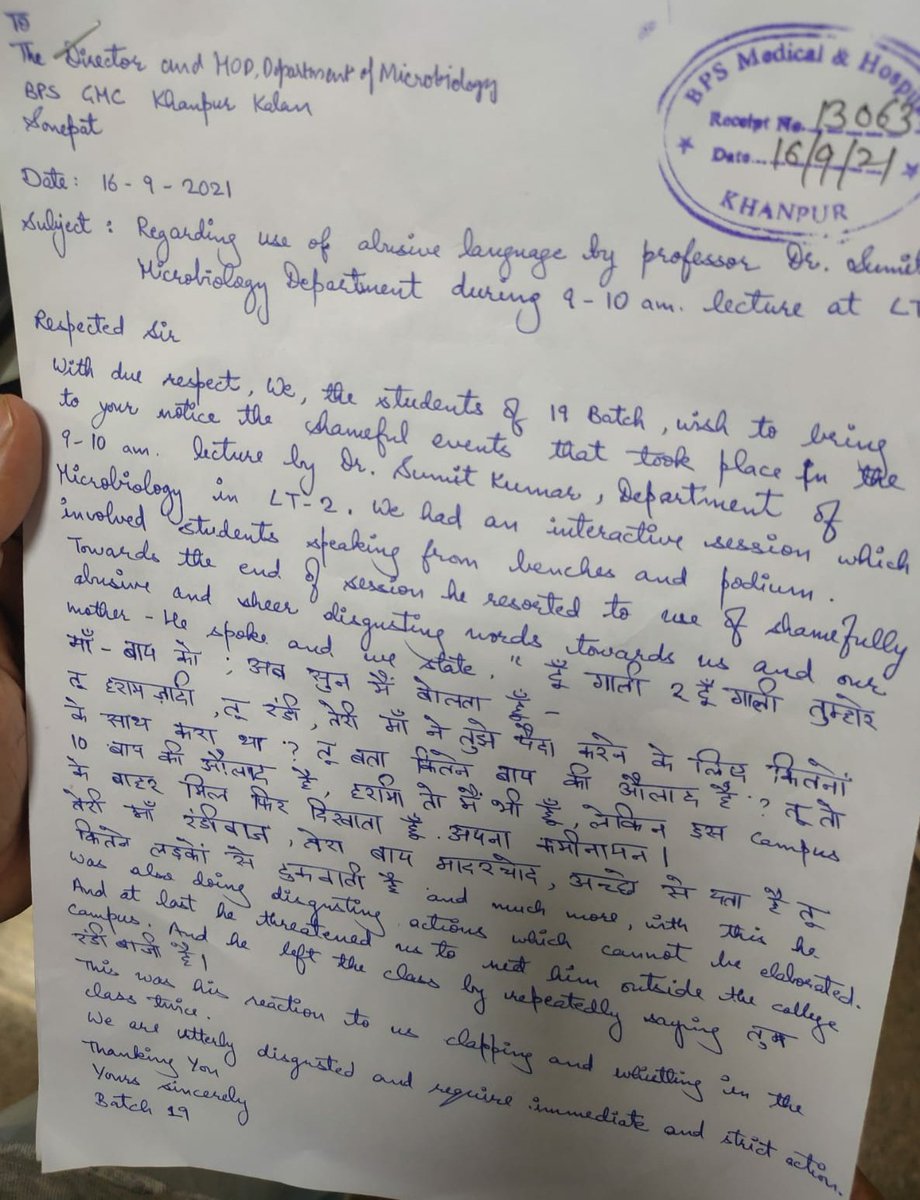 To
The Director and HOD, Department of Microbiology
BPS GMC Khanpur Kalan
Sonepat
BPS Medical & Hospi
Receipt No. 13063
Date... 16/9/21
KHANPUR
Date: 16-9-2021
Subject: Regarding use of abusive language by professor Dr. Sumit
Microbiology Department during 9-10 am. lecture at LT
Respected Sir
With due respect, We, the students of 19 Batch, wish to being
to your notice the shameful events that took place In the
9-10 am. lecture by Dr. Sumit Kumar, Department of
Microbiology in LT-2. We had an interactive session which
involved students speaking from benches and podium.
Towards the end of session he resorted to use of shamefully
abusive and sheer disgusting words towards us and our
mother - He spoke and we state, " दूँ गाली 2 दूँ गाली तुम्हारे
माँ-बाप को ; अब सुन मैं बोलता हूँ -
तू हरामज़ादी, तू रंडी, तेरी माँ ने तुझे पैदा करने के लिए कितनों
के साथ करा था ? तू बता कितने बाप की औलाद है ? तू तो
10 बाप की औलाद है, हरामी तो मैं भी हूँ, लेकिन इस campus
के बाहर मिल फिर दिखाता हूँ अपना कमीनापन।
तेरी माँ रंडीबाज, तेरा बाप मादरचोद, अच्छे से पता है तू
कितने लड़कों से ठुकवाती है and much more, with this he
was also doing disgusting actions which cannot be elaborated.
And at last he threatened us to met him outside the college
campus. And he left the class by repeatedly saying तुम
रंडी बाजी है।
This was his reaction to us clapping and whistling in the
class twice.
We are utterly disgusted and require immediate and strict action.
Thanking You
Yours sincerely
Batch 19